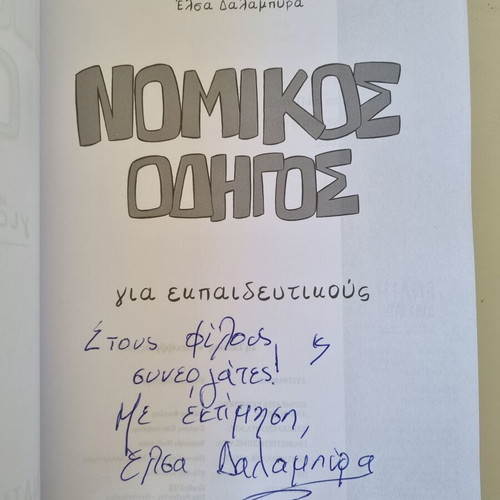 Έλσα Δαλαμπύρα
ΝΟΜΙΚΟΣ
ΟΔΗΓΟΣ
για εκπαιδευτικούς
Στους φίλους ϗ
συνεργάτες!
Με εκτίμηση,
Έλσα Δαλαμπύρα